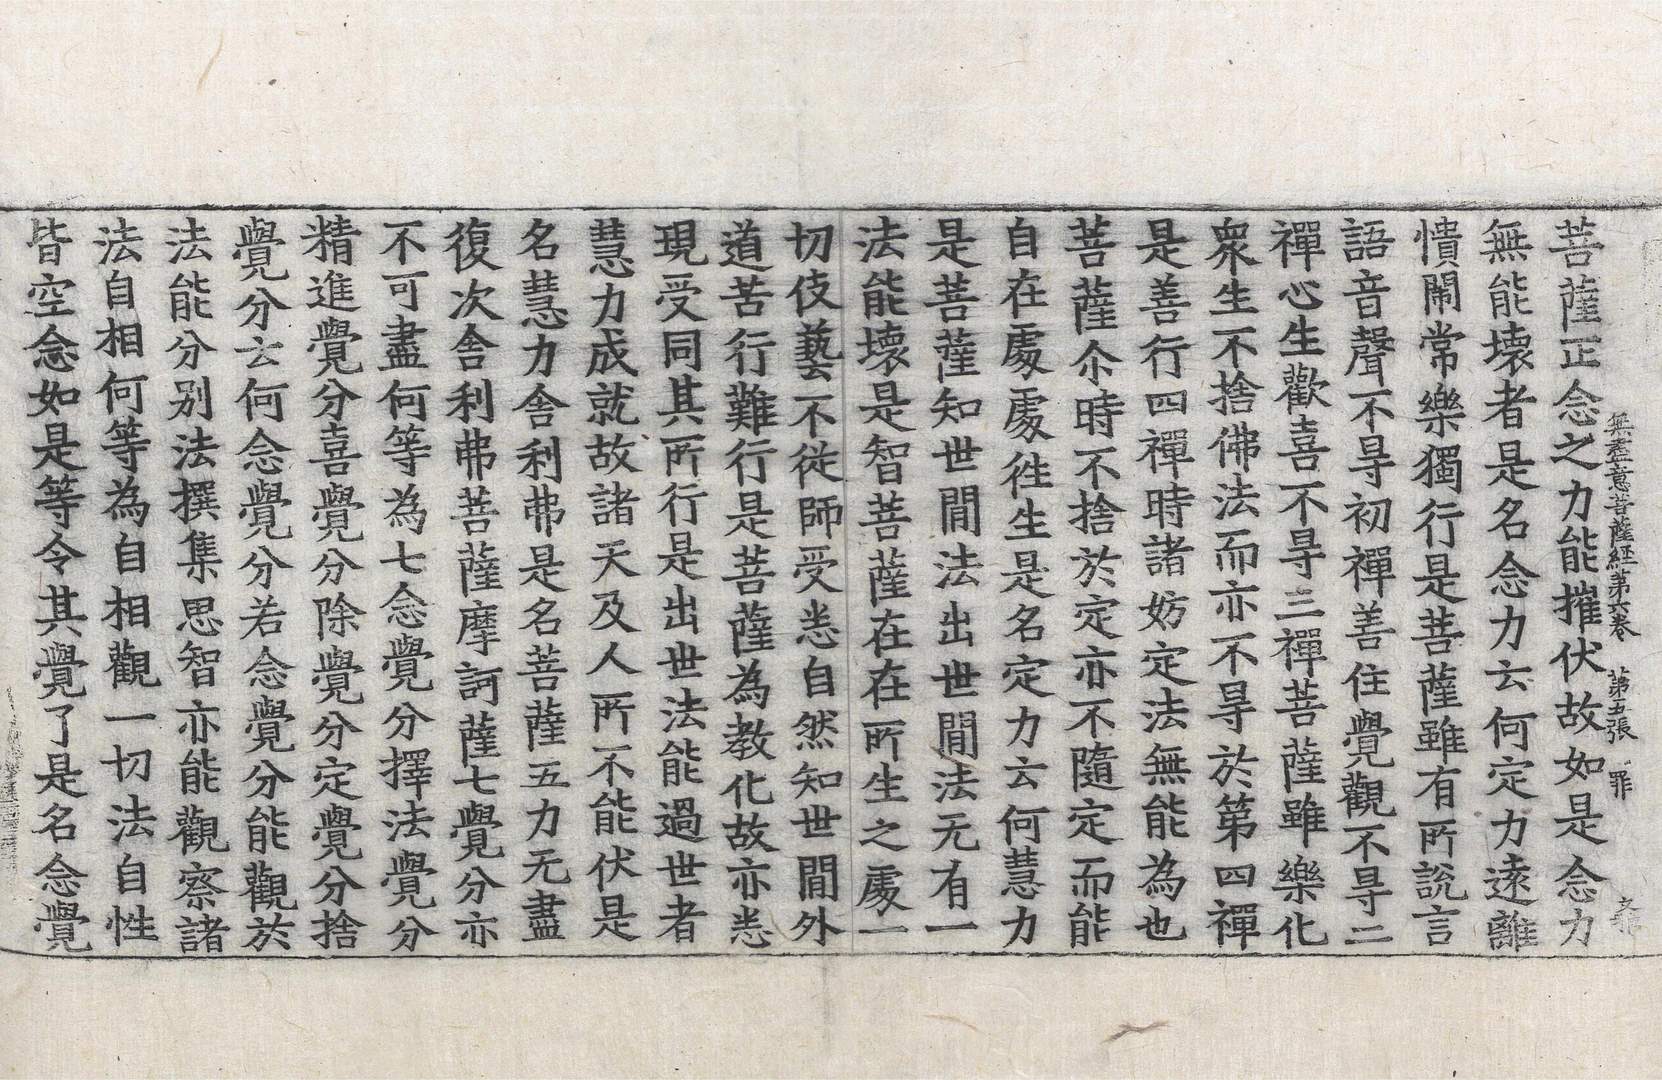 無盡意菩薩經第六卷　第五張　罪
菩薩正念之力能摧伏故如是念力
無能壞者是名念力云何定力遠離
憒鬧常樂獨行是菩薩雖有所說言
語音聲不㝵初禪善住覺觀不㝵二
禪心生歡喜不㝵三禪菩薩雖樂化
衆生不捨佛法而亦不㝵於第四禪
是善行四禪時諸妨定法無能為也
菩薩尒時不捨於定亦不隨定而能
自在處處徃生是名定力云何慧力
是菩薩知世間法出世間法无有一
法能壞是智菩薩在在所生之處一
切伎藝不從師受悉自然知世間外
道苦行難行是菩薩為教化故亦悉
現受同其所行是出世法能過世者
慧力成就故諸天及人所不能伏是
名慧力舍利弗是名菩薩五力无盡
復次舍利弗菩薩摩訶薩七覺分亦
不可盡何等為七念覺分擇法覺分
精進覺分喜覺分除覺分定覺分捨
覺分云何念覺分若念覺分能觀於
法能分別法撰集思智亦能觀察諸
法自相何等為自相觀一切法自性
皆空念如是等令其覺了是名念覺